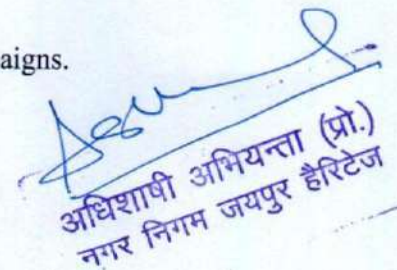 aigns.
अधिशाषी अभियन्ता (प्रो.)
नगर निगम जयपुर हैरिटेज